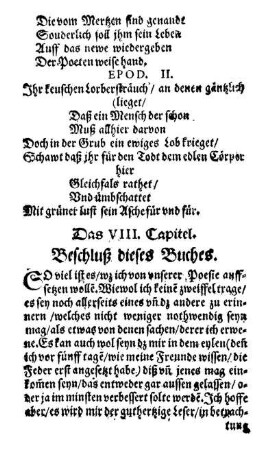 Die vom Mertzen sind genandt
Sonderlich soll jhm sein Leben
Auff das newe wiedergeben
Der Poeten weise hand.
EPOD. II.
Jhr keuschen Lorbersträuch / an denen gäntzlich
(lieget/
Daß ein Mensch der schon
Muß allhier darvon
Doch in der Grub ein ewiges Lob krieget/
Schawt daß jhr für den Todt dem edlen Cörper
hier
Gleichfals rathet/
Vnd vmbschattet
Mit grüner lust sein Asche für vnd für.
Das VIII. Capitel.
Beschluß dieses Buches.
SO viel ist es/ wz ich von vnserer Poesie auff-
setzen wollẽ. Wiewol ich keinẽ zweiffel trage/
es sey noch allerseits eines vñ dz andere zu erin-
nern / welches nicht weniger nothwendig seyn
mag/ als etwas von denen sachen/ derer ich erwe-
ne. Es kan auch wol seyn dz mir in dem eylen (deñ
ich vor fünff tagẽ/ wie meine Freunde wissen/ die
Feder erst angesetzt habe) diß vñ jenes mag ein-
kom̃en seyn/ das entweder gar aussen gelassen/ o-
der ja im minsten verbessert solte werdẽ. Ich hoffe
aber/ es wird mir der guthertzige Leser/ in betrach-
tung